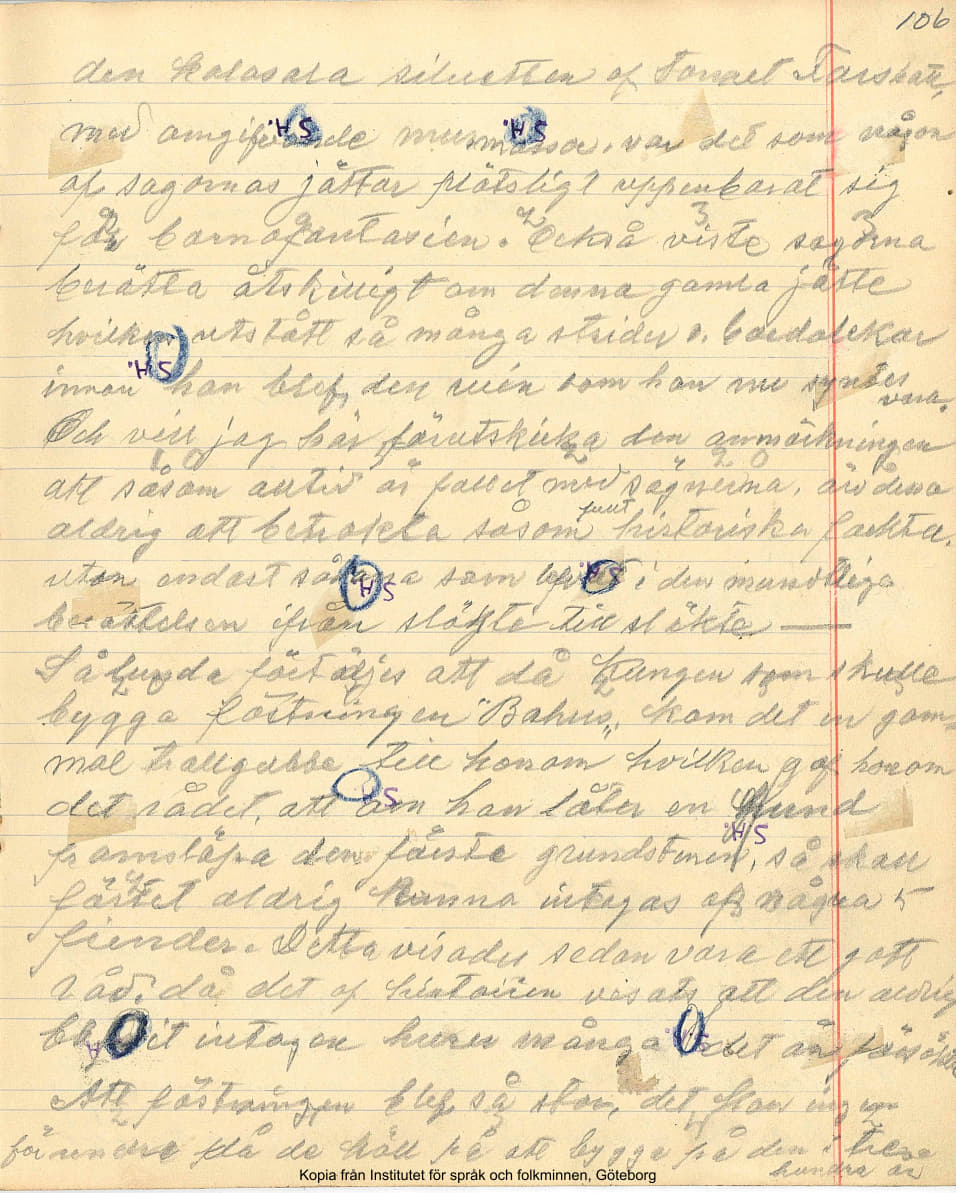 106
den kolosala siluetten af Tornet Farshatt,
med omgifvande murmassor, var det som någon
af sagornas jättar plötsligt uppenbarat sig
för barnafantasien. Också viste sagorna
berätta åtskilligt om denna gamla jätte
hvilken utstått så många strider o. bardalekar
innan han blef den ruin som han nu syntes
vara.
Och vill jag här förutskicka den anmärkningen
att såsom alltid är fallet med sägnerna, äro dessa
aldrig att betrakta såsom fullt historiska fackta.
utan endast sådana som lefvat i den muntliga
berättelsen ifrån slägte till släkte —
Sålunda förtäljes att då Kungen som skulle
bygga fästningen "Bahus„ kom det en gam-
mal trallgubbe till honom hvilken gaf honom
det rådet, att om han låter en Hund
framsläpa den första grundstenen, så skall
fästet aldrig kunna intagas af några
fiender. Detta visades sedan vara ett gott
råd. då det af historien visats att den aldrig
blifvit intagen huru många det än försökt
Att fästningen blef så stor, det kan ingen
förundra då de höll på att bygga på den i tre
hundra år
S H.
S H.
S H.
S H.
S H.
S
S H.
Kopia från Institutet för språk och folkminnen, Göteborg